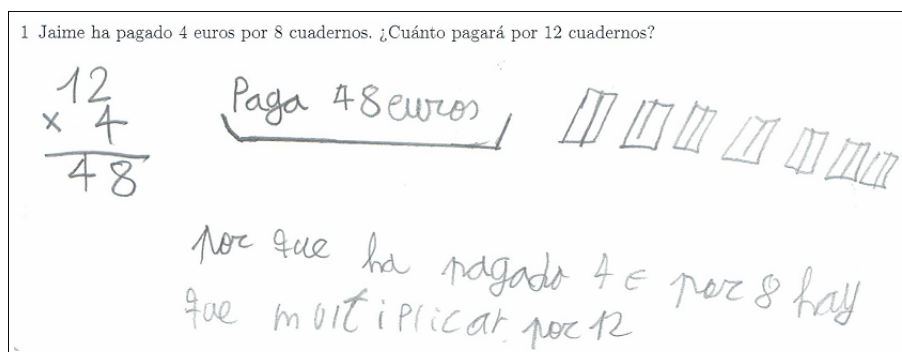 1 Jaime ha pagado 4 euros por 8 cuadernos. ¿Cuánto pagará por 12 cuadernos?
12
× 4
48
Paga 48 euros
por que ha pagado 4 € por 8 hay
que multiplicar por 12